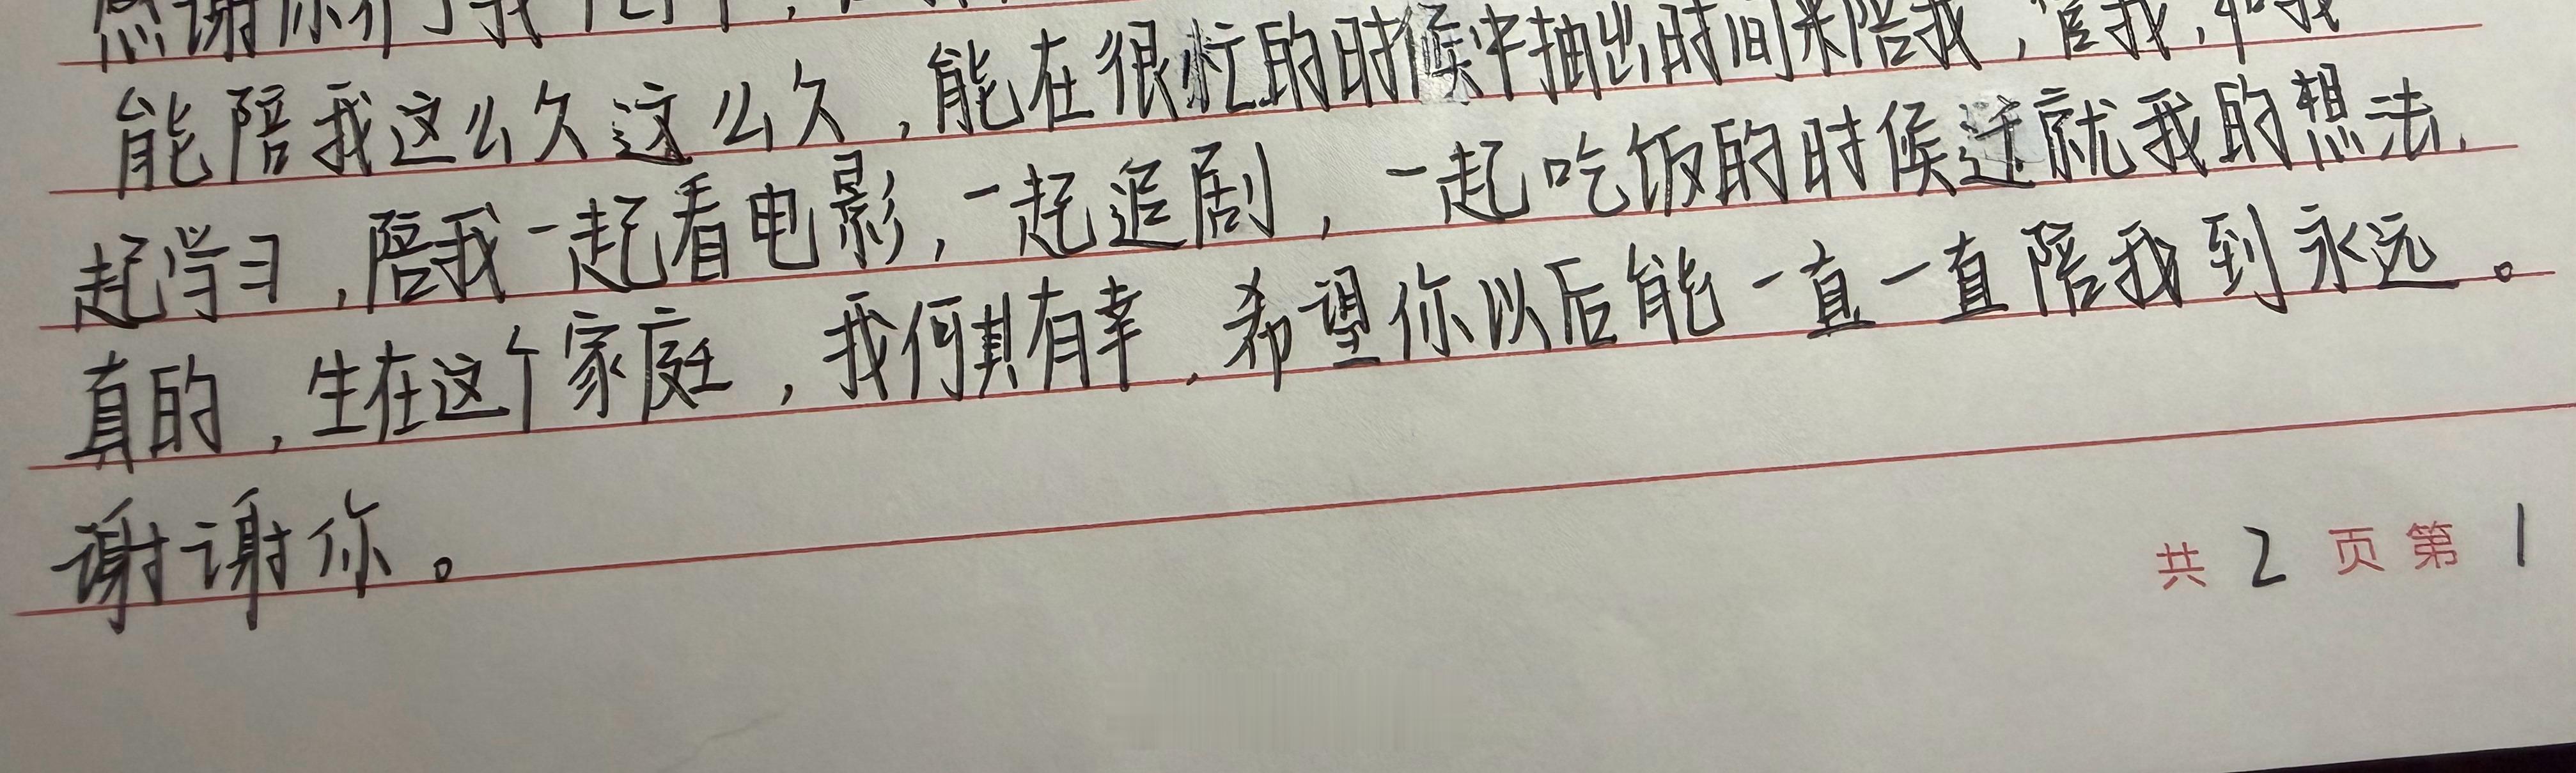 能陪我这么久这么久，能在很忙的时候中抽出时间来陪我，管我，和我
起学习，陪我一起看电影，一起追剧，一起吃饭的时候迁就我的想法，
真的，生在这个家庭，我何其有幸，希望你以后能一直一直陪我到永远。
谢谢你。
共 2 页 第 1